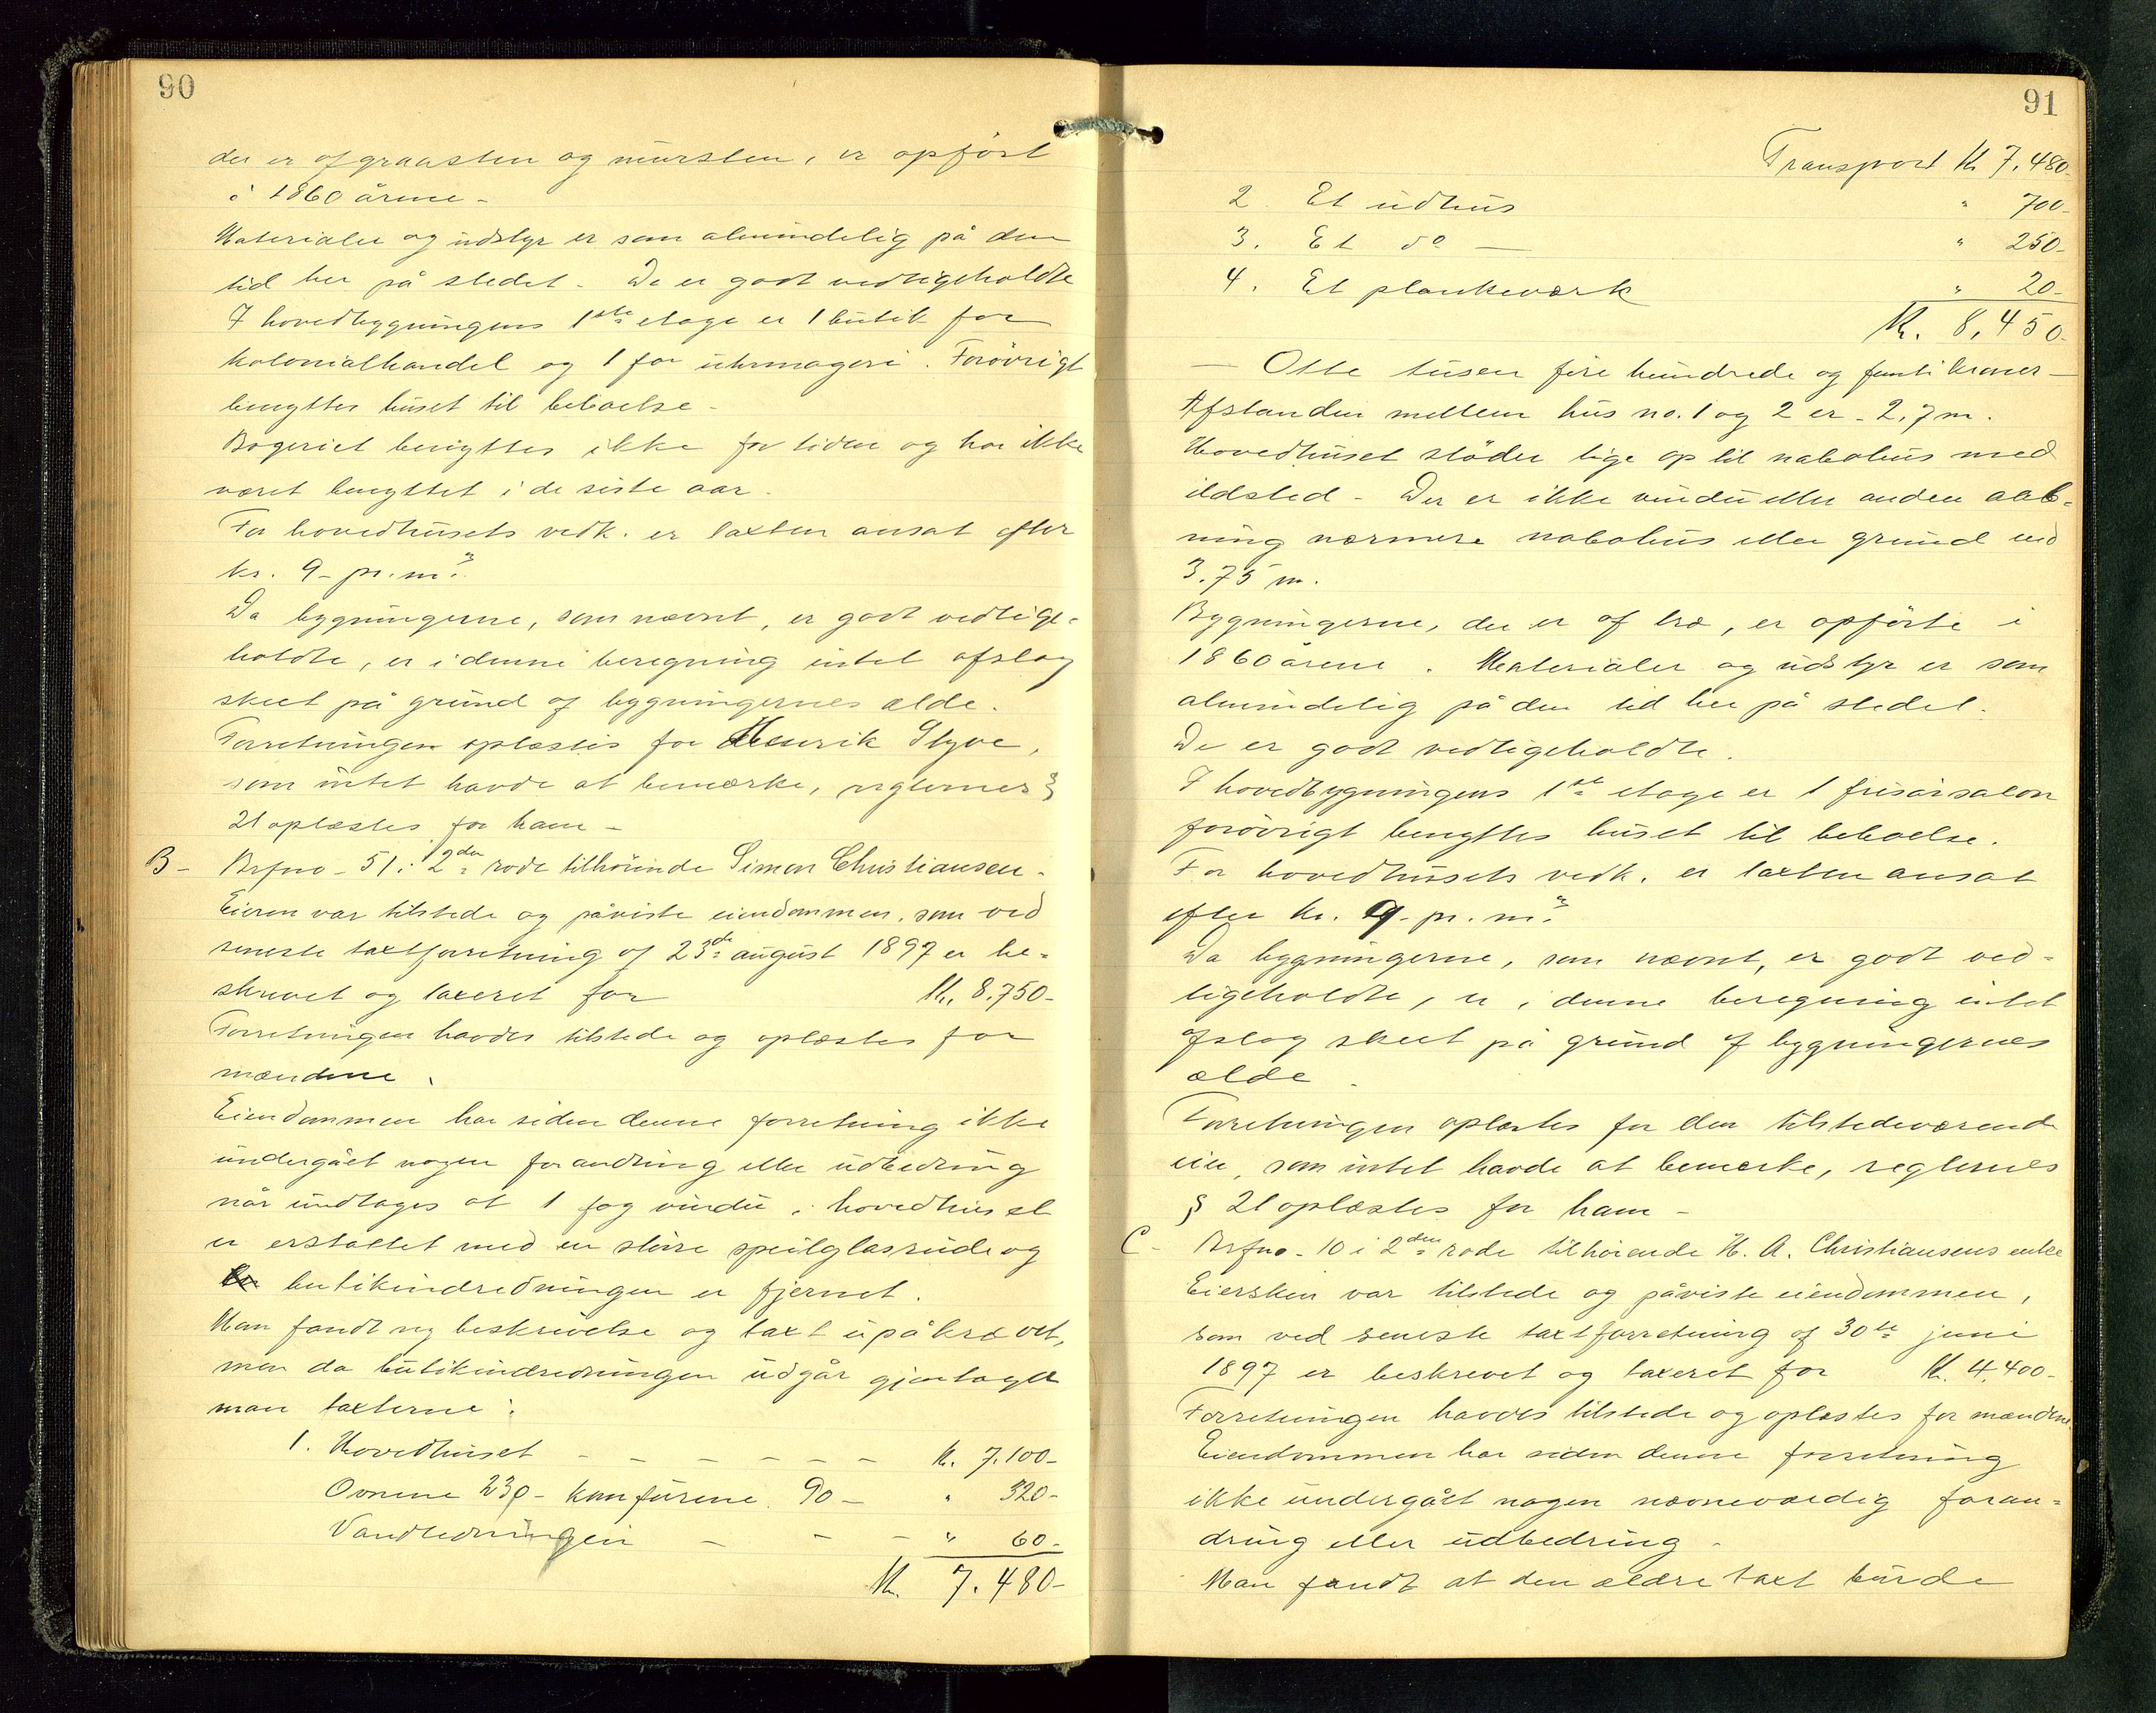 90
der er af graasten og mursten, er opført
i 1860 årene -
Materialer og udstyr er som almindelig på den
tid her på stedet - De er godt vedligeholdte
I hovedbygningens 1ste etage er 1 butik for
kolonialhandel og 1 for uhrmageri. Forøvrigt
benyttes huset til beboelse -
Bageriet benyttes ikke for tiden og har ikke
været benyttet i de siste aar.
For hovedhusets vedk. er taxten ansat efter
kr. 9- pr. m³.
Da bygningerne, som nævnt, er godt vedlige-
holdte, er i denne beregning intet afslag
skeet på grund af bygningernes ælde.
Forretningen oplæstes for Henrik Styve,
som intet havde at bemærke, reglernes §
21 oplæstes for ham -
B - Brfno - 51 i 2den rode tilhørende Simon Christiansen -
Eieren var tilstede og påviste eiendommen, som ved
seneste taxtforretning af 23de august 1897 er be-
skrevet og taxeret for Kr. 8.750-
Forretningen havdes tilstede og oplæstes for
mændene.
Eiendommen har siden denne forretning ikke
undergået nogen forandring eller udbedring
når undtages at 1 fag vindu i hovedhuset
er erstattet med en større speilglasrude og
butikindredningen er fjernet.
Man fandt ny beskrivelse og taxt upåkrævet,
men da butikindredningen udgår gjentager
man taxterne:
1. Hovedhuset - - - - - - kr. 7.100-
Ovnene 230- komfurene 90 - " 320-
Vandledningen - - - " 60-
Kr. 7.480-
91
Transport Kr 7.480-
2. Et udhus " 700-
3. Et do - " 250-
4. Et plankeværk " 20-
Kr. 8,450-
- Otte tusen fire hundrede og femti kroner -
Afstanden mellem hus no. 1 og 2 er - 2,7 m.
Hovedhuset støder lige op til nabohus med
ildsted - Der er ikke vindu eller anden aab-
ning nærmere nabohus eller grund end
3.75 m.
Bygningerne, der er af træ, er opførte i
1860 årene. Materialer og udstyr er som
almindelig på den tid her på stedet.
De er godt vedligeholdte.
I hovedbygningens 1ste etage er 1 frisørsalon
forøvrigt benyttes huset til beboelse.
For hovedhusets vedk. er taxten ansat
efter kr. 9- pr. m³.
Da bygningerne, som nævnt, er godt ved-
ligeholdte, er i denne beregning intet
afslag skeet på grund af bygningernes
ælde.
Forretningen oplæstes for den tilstedeværende
eier, som intet havde at bemærke, reglernes
§ 21 oplæstes for ham -
C - Brfno - 10 i 2den rode tilhørende H. A. Christiansens enke
Eiersken var tilstede og påviste eiendommen,
som ved seneste taxtforretning af 30te juni
1897 er beskrevet og taxeret for Kr. 4.400-
Forretningen havdes tilstede og oplæstes for mændene
Eiendommen har siden denne forretning
ikke undergået nogen nævneværdig foran-
dring eller udbedring -
Man fandt at den ældre taxt burde